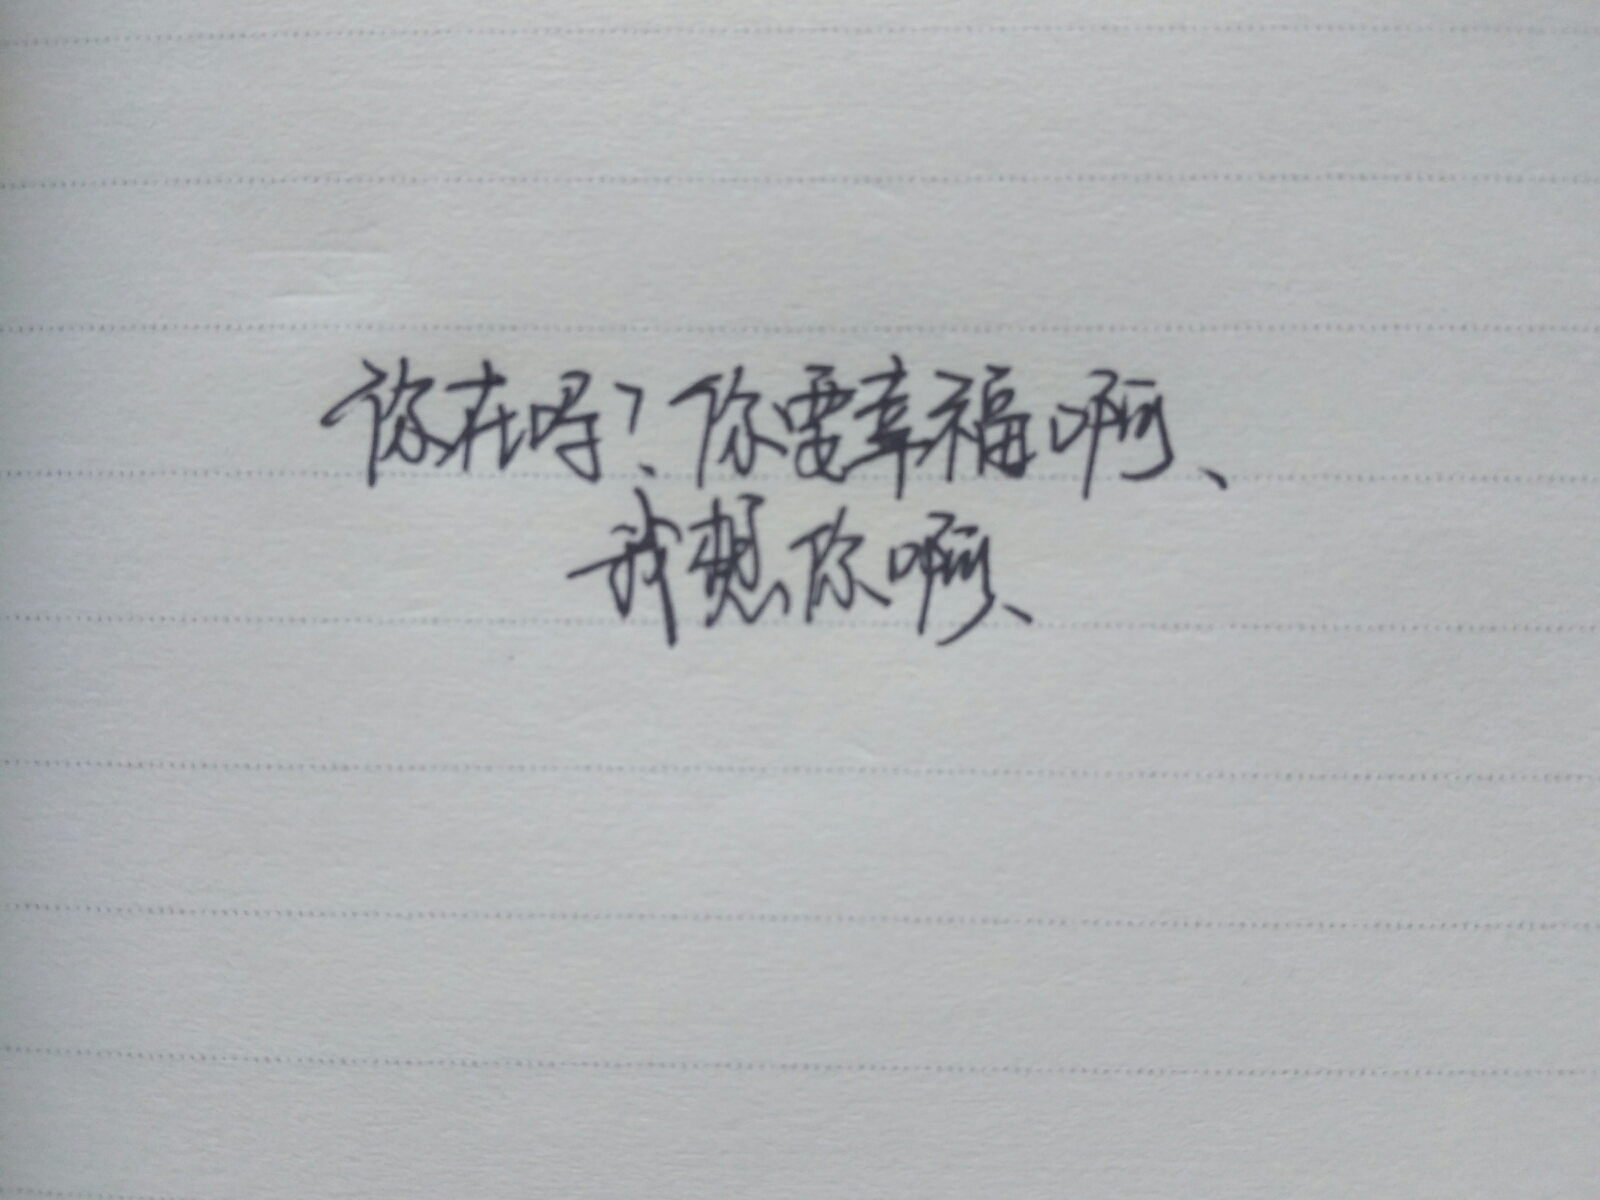 你在吗？你要幸福啊、
我想你啊、